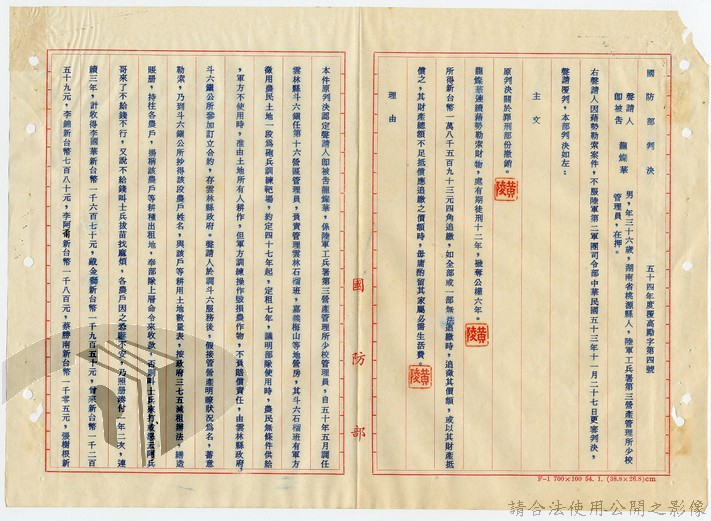 國防部判決
五十四年度覆高勵字第四號
聲請人
即被告
龍燦華
男,年三十六歲,湖南省桃源縣人,陸軍工兵署第三營產管理所少校
管理員,在押。
右聲請人因藉勢勒索案件,不服陸軍第二軍團司令部中華民國五十三年十一月二十七日更審判決,
聲請覆判,本部判決如左:
主文
原判決關於罪刑部份撤銷。
龍燦華連續藉勢勒索財物,處有期徒刑十二年,褫奪公權六年。
所得新台幣一萬八千五百九十三元四角追繳,如全部或一部無法追繳時,追徵其價額,或以其財產抵
償之,其財產總額不足抵償應追繳之價額時,毋庸酌留其家屬必需生活費。
理由
國防部
本件原判決認定聲請人即被告龍燦華,係陸軍工兵署第三營產管理所少校管理員,自五十年五月調任
雲林縣斗六鎮任第十六營區管理員,負責管理雲林石榴班,嘉義梅山等地營房,其斗六石榴班有軍方
徵用農民土地一段為砲兵訓練靶場,約定四十七年起,定租七年,議明部隊使用時,農民無條件供給
,軍方不使用時,准由土地所有人耕作,但軍方訓練操作毀損農作物,不負賠償責任,由雲林縣政府,
斗六鎮公所參加訂立合約,存雲林縣政府。聲請人於調斗六服務後,假接管營產明瞭狀況為名,蓄意
勒索,乃到斗六鎮公所抄得該段農戶姓名,與該戶等耕用土地數量表,按政府三七五減租辦法,繕造
賬册,持往各農戶,揚稱該農戶等耕種出租地,奉部隊上層命令來收款,否則叫士兵來打
哥來了不給錢不行,又說不給錢叫士兵拔苗找麻煩,各農戶因之恐懼不安,乃照册湊付一年二次,連
續三年,計收得李國華新台幣一千六百七十元,戴金獅新台幣一千九百五十元,曾來新台幣一千二百
五十九元,李錦新台幣七百八十元,李阿甯新台幣一千八百元,蔡勝南新台幣一千零五元,張樹根新
F-1 700×100 54. 1. (38.8×26.8)cm
請合法使用公開之影像